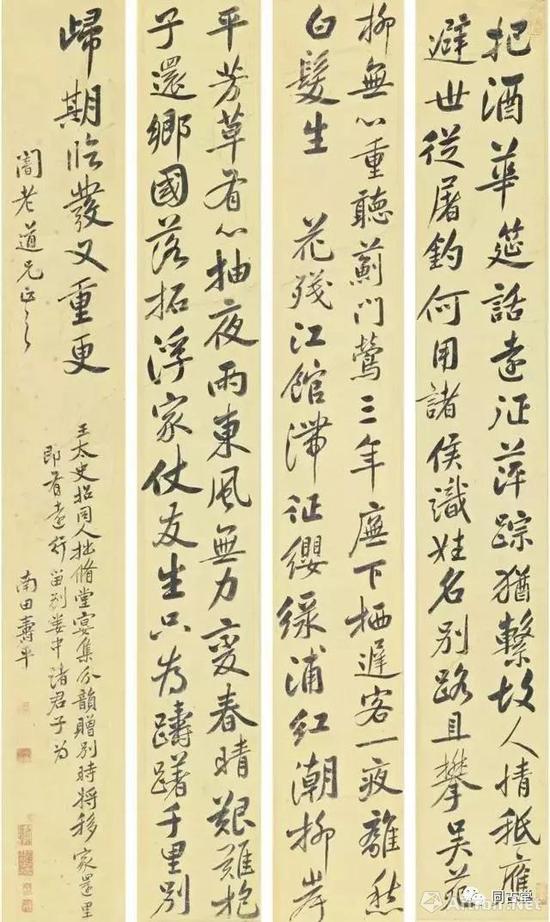 把酒華筵話遠征萍踪猶繫故人情秪應
避世從屠釣何用諸侯識姓名別路且攀吳苑
柳無心重聽薊門鶯三年廡下栖遲客一夜離愁
白髮生 花殘江館滯征纓綠浦紅潮柳岸
平芳草有心抽夜雨東風無力變春晴艱難抱
子還鄉國落拓浮家仗友生只為躊躇千里別
歸期臨發又重更
闇老道兄正之
王太史招同人拙脩堂宴集分韻贈別時將移家還里
即有遠行留別婁中諸君子為
南田壽平
同古堂